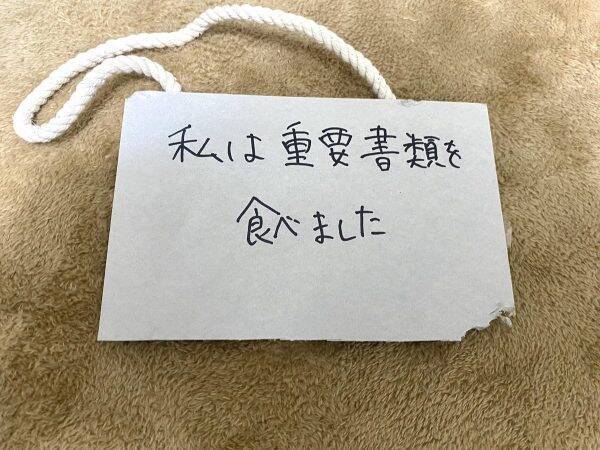 私は重要書類を
食べました